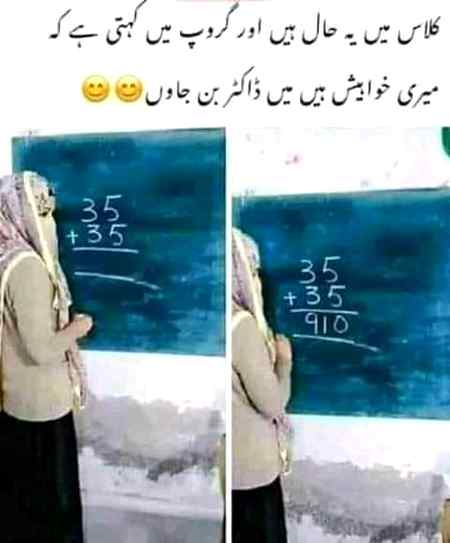 کلاس میں یہ حال ہیں اور گروپ میں کہتی ہے کہ
میری خواہیش ہیں میں ڈاکٹر بن جاوں😊😊
35
+35
35
+35
910